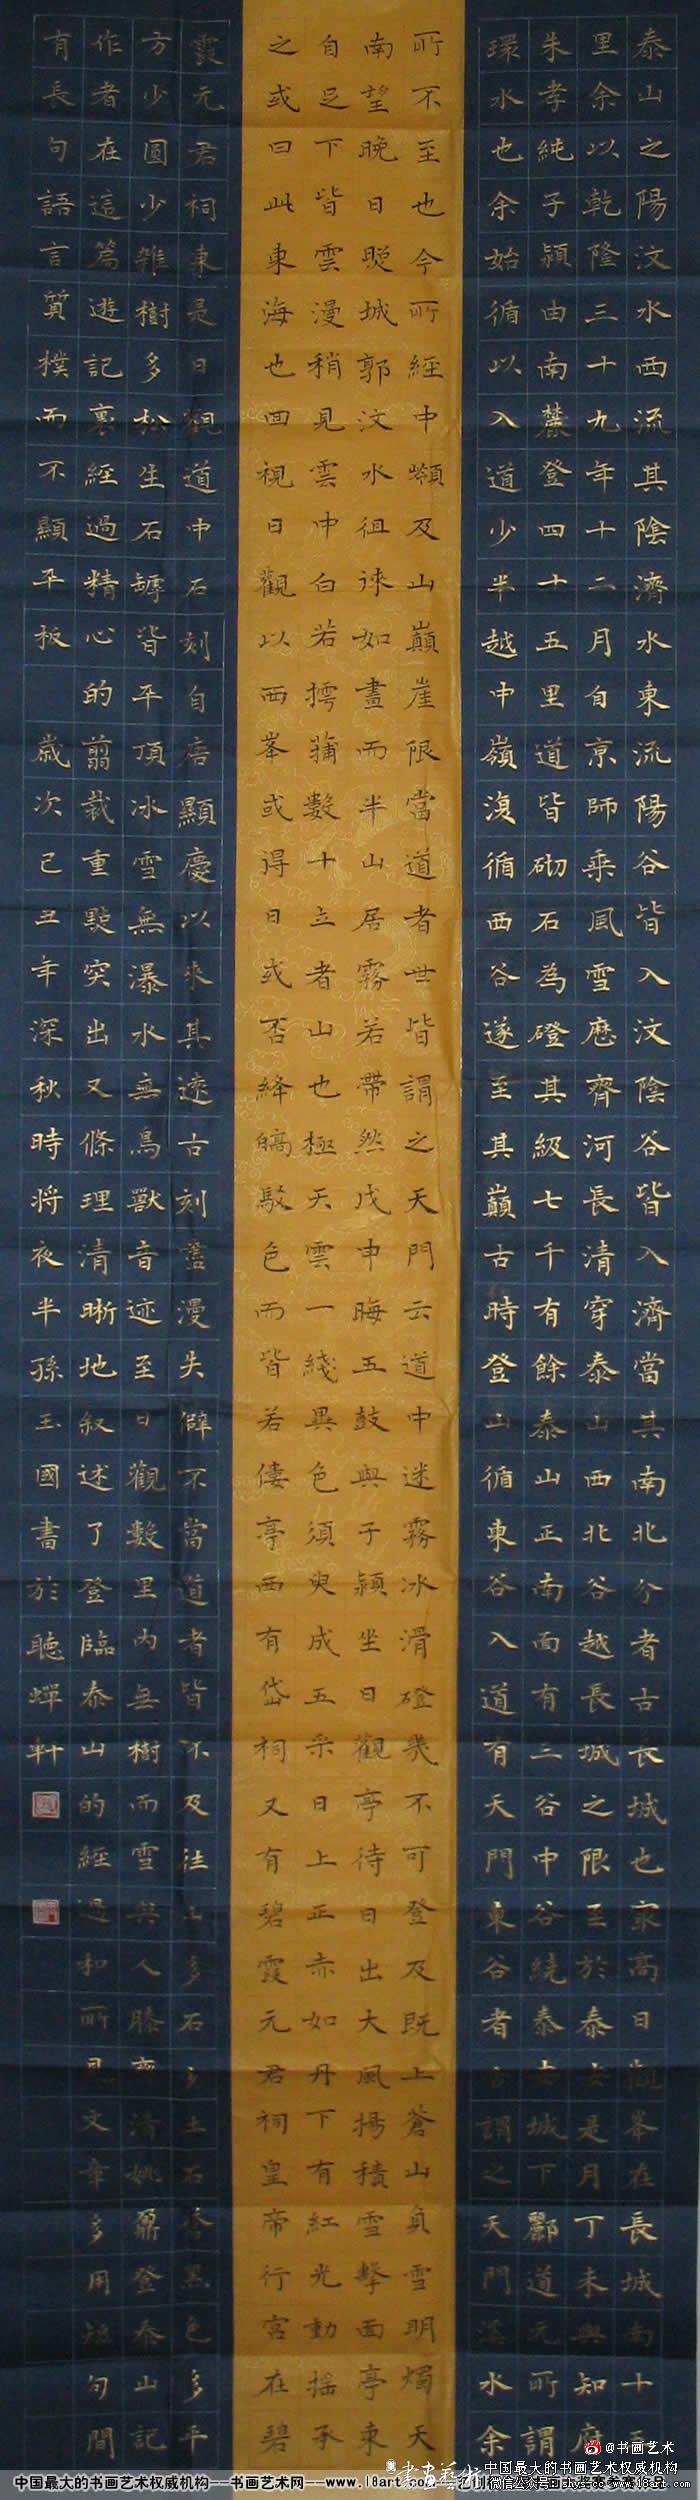 泰山之陽汶水西流其陰濟水東流陽谷皆入汶陰谷皆入濟當其南北分者古長城也冣高日觀峯在長城南十五
里余以乾隆三十九年十二月自京師乘風雪歷齊河長清穿泰山西北谷越長城之限至於泰安是月丁未與知府
朱孝純子潁由南麓登四十五里道皆砌石為磴其級七千有餘泰山正南面有三谷中谷繞泰安城下酈道元所謂
環水也余始循以入道少半越中嶺復循西谷遂至其巔古時登山循東谷入道有天門東谷者古謂之天門溪水余
所不至也今所經中嶺及山巔崖限當道者世皆謂之天門云道中迷霧冰滑磴幾不可登及既上蒼山負雪明燭天
南望晚日照城郭汶水徂徠如畫而半山居霧若帶然戊申晦五鼓與子潁坐日觀亭待日出大風揚積雪擊面亭東
自足下皆雲漫稍見雲中白若摴蒱數十立者山也極天雲一綫異色須臾成五采日上正赤如丹下有紅光動摇承
之或曰此東海也回視日觀以西峯或得日或否絳皜駁色而皆若僂亭西有岱祠又有碧霞元君祠皇帝行宮在碧
霞元君祠東是日觀道中石刻自唐顯慶以來其遠古刻盡漫失僻不當道者皆不及往山多石少土石蒼黑色多平
方少圓少雜樹多松生石罅皆平頂冰雪無瀑水無鳥獸音迹至日觀數里內無樹而雪與人膝齊清姚鼐登泰山記
作者在這篇遊記裏經過精心的翦裁重點突出又條理清晰地叙述了登臨泰山的經過和所見文章多用短句間
有長句語言質樸而不顯平板 歲次己丑年深秋時將夜半孫玉國書於聽蟬軒
@书画艺术
中国最大的书画艺术权威机构---书画艺术网---www.18art.com
中国最大的书画艺术权威机构